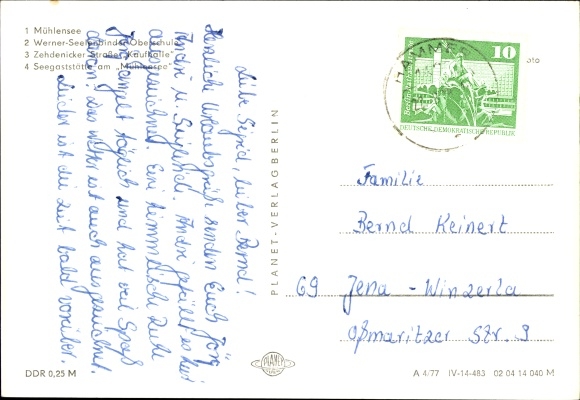 1 Mühlensee
2 Werner-Seelenbinder-Oberschule
3 Zehdenicker Straße "Kaufhalle"
4 Seegaststätte am "Mühlensee"
Liebe Sigrid, lieber Bernd!
Herzliche Urlaubsgrüße senden Euch
André u. Sieglinde. André gefällt es hier
ausgezeichnet. Eine himmlische Ruhe
täglich und hat viel Spaß
daran! Das Wetter ist auch ausgezeichnet.
Leider ist die Zeit bald vorüber.
PLANET-VERLAG BERLIN
HAMMER
10
DEUTSCHE DEMOKRATISCHE REPUBLIK
oto
Familie
Bernd Keinert
69 Jena - Winzerla
Oßmaritzer Str. 9
DDR 0,25 M
PLANET
A 4/77 IV-14-483 02 04 14 040 M